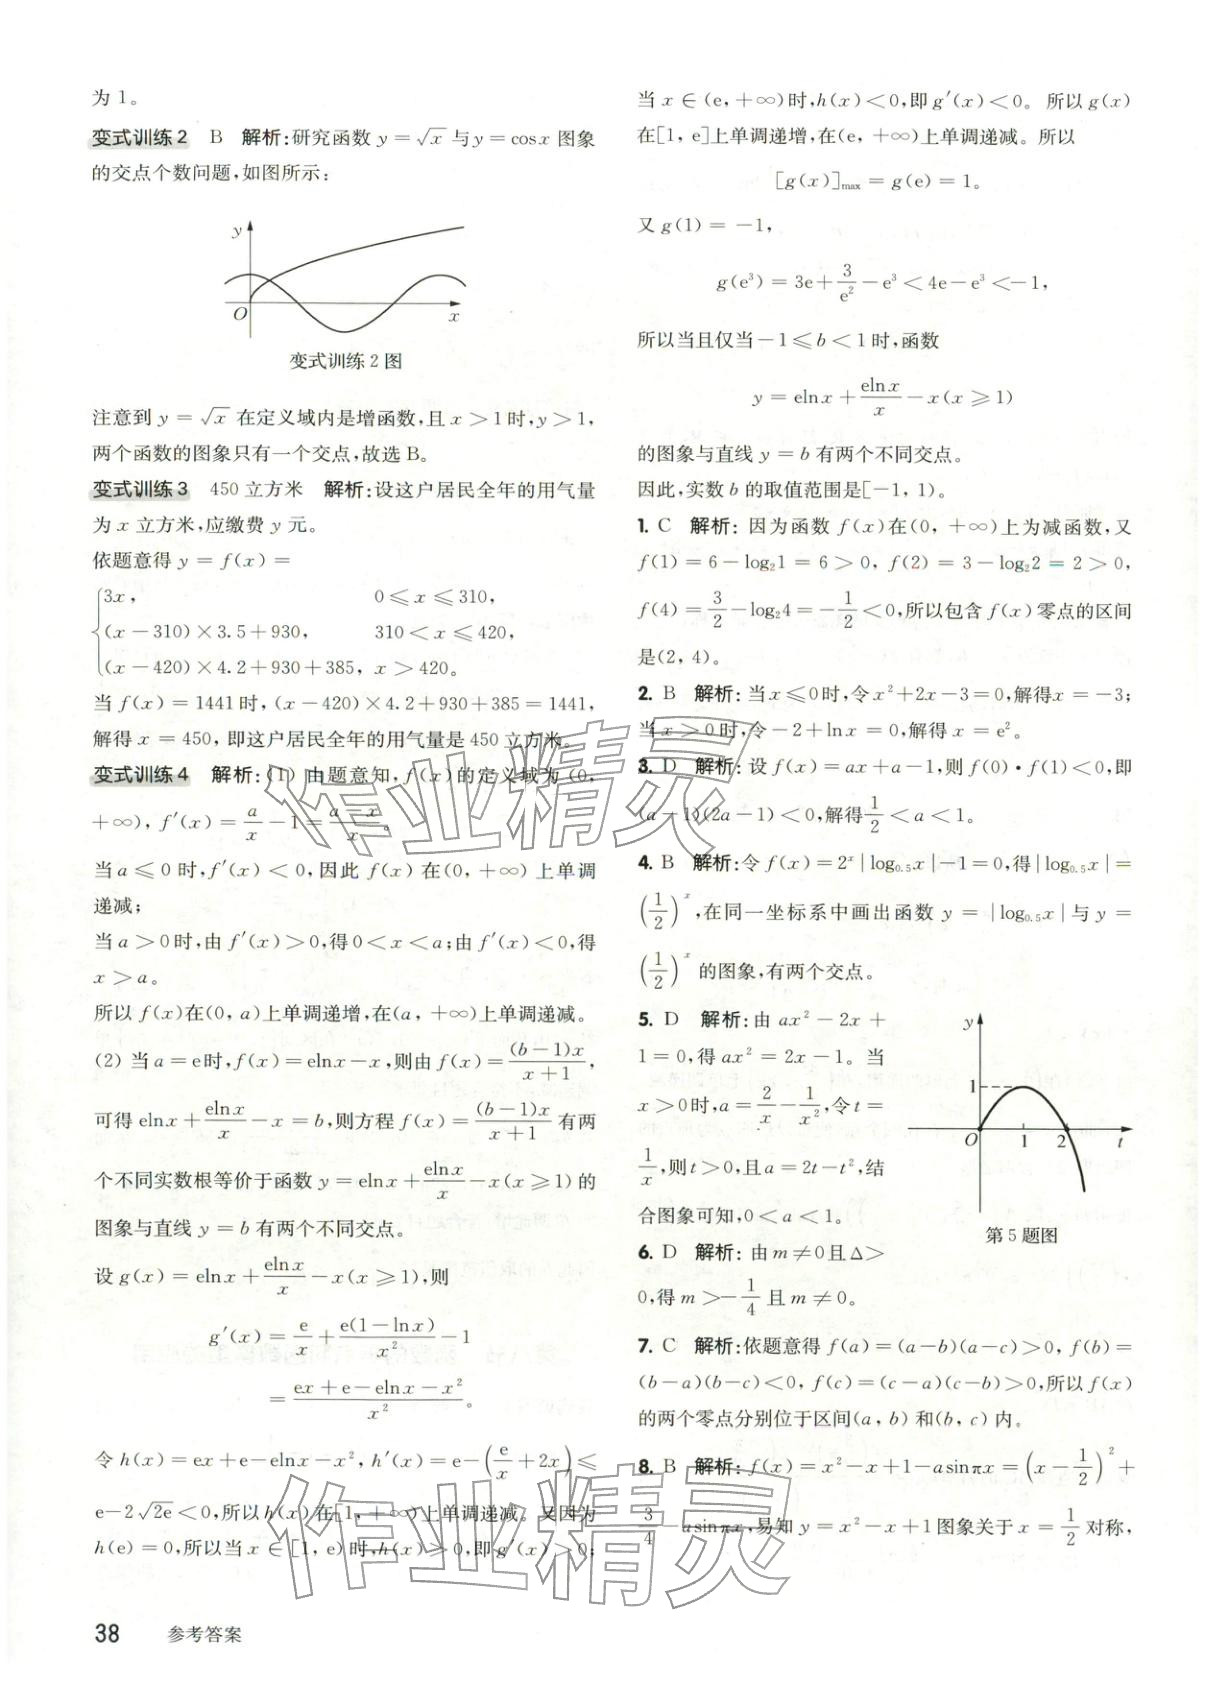 为 1。
变式训练2 B 解析:研究函数 y=√x 与y=cosx 图象
的交点个数问题,如图所示:
y
O
x
变式训练 2 图
注意到 y=√x 在定义域内是增函数,且 x>1时,y>1,
两个函数的图象只有一个交点,故选 B。
变式训练3 450 立方米 解析:设这户居民全年的用气量
为 x 立方米,应缴费 y 元。
依题意得 y=f(x)=
{3x, 0≤x≤310,
(x-310)×3.5+930, 310<x≤420,
(x-420)×4.2+930+385, x>420。
当 f(x)=1441 时,(x-420)×4.2+930+385=1441,
解得 x=450,即这户居民全年的用气量是 450 立方米。
变式训练4 解析:(1) 由题意知,f(x)的定义域为(0,
+∞),f′(x)=a/x-1=(a-x)/x。
当 a≤0 时,f′(x)<0,因此 f(x)在(0,+∞)上单调
递减;
当 a>0时,由 f′(x)>0,得0<x<a;由 f′(x)<0,得
x>a。
所以 f(x)在(0, a)上单调递增,在(a, +∞)上单调递减。
(2) 当 a=e时,f(x)=elnx-x,则由 f(x)=(b-1)x/(x+1),
可得 elnx+elnx/x-x=b,则方程 f(x)=(b-1)x/(x+1) 有两
个不同实数根等价于函数 y=elnx+elnx/x-x(x≥1)的
图象与直线 y=b 有两个不同交点。
设 g(x)=elnx+elnx/x-x(x≥1),则
g′(x)=e/x+e(1-lnx)/x²-1
=(ex+e-elnx-x²)/x²。
令 h(x)=ex+e-elnx-x²,h′(x)=e-(e/x+2x)≤
e-2√2e<0,所以 h(x)在[1,+∞)上单调递减。又因为
h(e)=0,所以当 x∈[1, e)时,h(x)>0,即 g′(x)>0;
当 x∈(e,+∞)时,h(x)<0,即 g′(x)<0。所以 g(x)
在[1, e]上单调递增,在(e, +∞)上单调递减。所以
[g(x)]max=g(e)=1。
又 g(1)=-1,
g(e³)=3e+3/e²-e³<4e-e³<-1,
所以当且仅当-1≤b<1时,函数
y=elnx+elnx/x-x(x≥1)
的图象与直线 y=b 有两个不同交点。
因此,实数 b 的取值范围是[-1, 1)。
1. C 解析: 因为函数 f(x)在(0, +∞)上为减函数,又
f(1)=6-log₂1=6>0, f(2)=3-log₂2=2>0,
f(4)=3/2-log₂4=-1/2<0,所以包含 f(x)零点的区间
是(2, 4)。
2. B 解析:当x≤0时,令x²+2x-3=0,解得x=-3;
当 x>0时,令-2+lnx=0,解得 x=e²。
3. D 解析:设 f(x)=ax+a-1,则 f(0)·f(1)<0,即
(a-1)(2a-1)<0,解得1/2<a<1。
4. B 解析:令 f(x)=2ˣ|log₀.₅x|-1=0,得|log₀.₅x|=
(1/2)ˣ,在同一坐标系中画出函数 y=|log₀.₅x|与 y=
(1/2)ˣ 的图象,有两个交点。
5. D 解析:由 ax²-2x+
1=0,得 ax²=2x-1。当
x>0时,a=2/x-1/x²,令 t=
1/x,则 t>0,且 a=2t-t²,结
合图象可知,0<a<1。
y
1
O 1 2 t
第 5 题图
6. D 解析: 由 m≠0 且 Δ>
0,得 m>-1/4 且 m≠0。
7. C 解析:依题意得 f(a)=(a-b)(a-c)>0, f(b)=
(b-a)(b-c)<0, f(c)=(c-a)(c-b)>0,所以 f(x)
的两个零点分别位于区间(a, b)和(b, c)内。
8. B 解析:f(x)=x²-x+1-asinπx=(x-1/2)²+
3/4-asinπx,易知 y=x²-x+1图象关于 x=1/2 对称,
作业精灵
作业精灵
38 参考答案